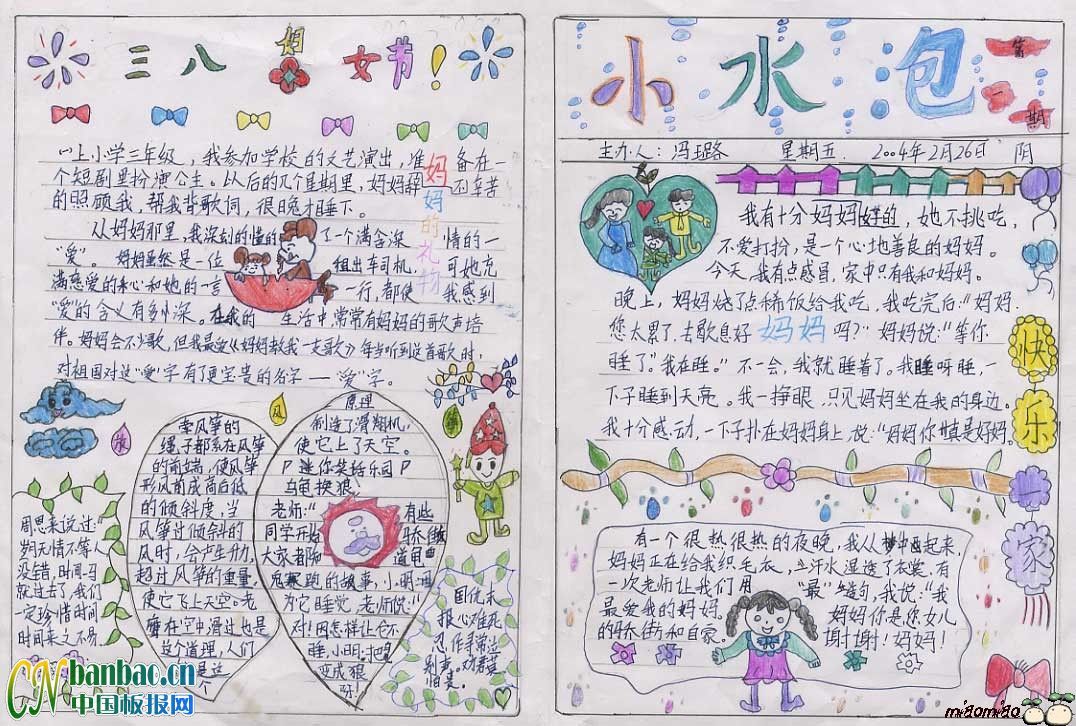 三八妇女节!
上小学三年级,我参加学校的文艺演出,准备在一
个短剧里扮演公主。从以后的几个星期里,妈妈
的照顾我,帮我背歌词,很晚才睡下。
妈妈的礼物
从妈妈那里,我深刻的懂的了一个满含深情的一
“爱”。妈妈虽然是一位租出车司机,可她充
满慈爱的和她的一言一行,都使我感到
“爱”的含义有多么深。在我的生活中,常常有妈妈的歌声培
伴。妈妈会不少歌,但我最爱《妈妈教我一支歌》每当听到这首歌时,
对祖国对这“爱”字有了更宝贵的名字——“爱”字。
风筝
牵风筝的
绳子都系在风筝
的前端,使风筝
形成前高后低
的倾斜度,当
风筝过倾斜的
风时,会产生升力,
超过风筝的重量,
使它飞上天空。老
鹰在空中滑过也是
这个道理,人们
是这个
原理
制造了滑翔机,
使它上了天空。
P 迷你笑话乐园 P
乌龟换狼
老师:“有些
同学开始骄傲
大家都知道龟
兔赛跑的故事,小明:
为它睡觉,老师说:“
对!因怎样让它不
睡,小明:把
变成狼
呀!
周恩来说过:“
时间不等人
没错,时间一
就过去了,我们
一定珍惜时间
时间来之不易。
CN banbao.cn
中国板报网
小水泡
第一期
主办人:冯璐 星期五 2004年2月26日 阴
我有十分妈妈好的,她不挑吃,
不爱打扮,是一个心地善良的妈妈。
今天,我有点感冒,家中只有我和妈妈.
晚上,妈妈烧了点稀饭给我吃,我吃完后:“妈妈
您太累了,去歇息好妈妈吗?”妈妈说:“等你
睡了”。我在睡。”不一会,我就睡着了。我睡呀睡,一
下子睡到天亮。我一挣眼,只见妈妈坐在我的身边。
我十分感动,一下子扑在妈妈身上,说:“妈妈你真是好妈.
快乐一家
有一个很热很热的夜晚,我从梦中起来,
妈妈正在给我织毛衣,汗水湿透了衣裳.有
一次老师让我们用“最”造句,我说:“我
最爱我的妈妈. 妈妈你是您女儿
的骄傲和自豪。谢谢!妈妈!
miaomiao